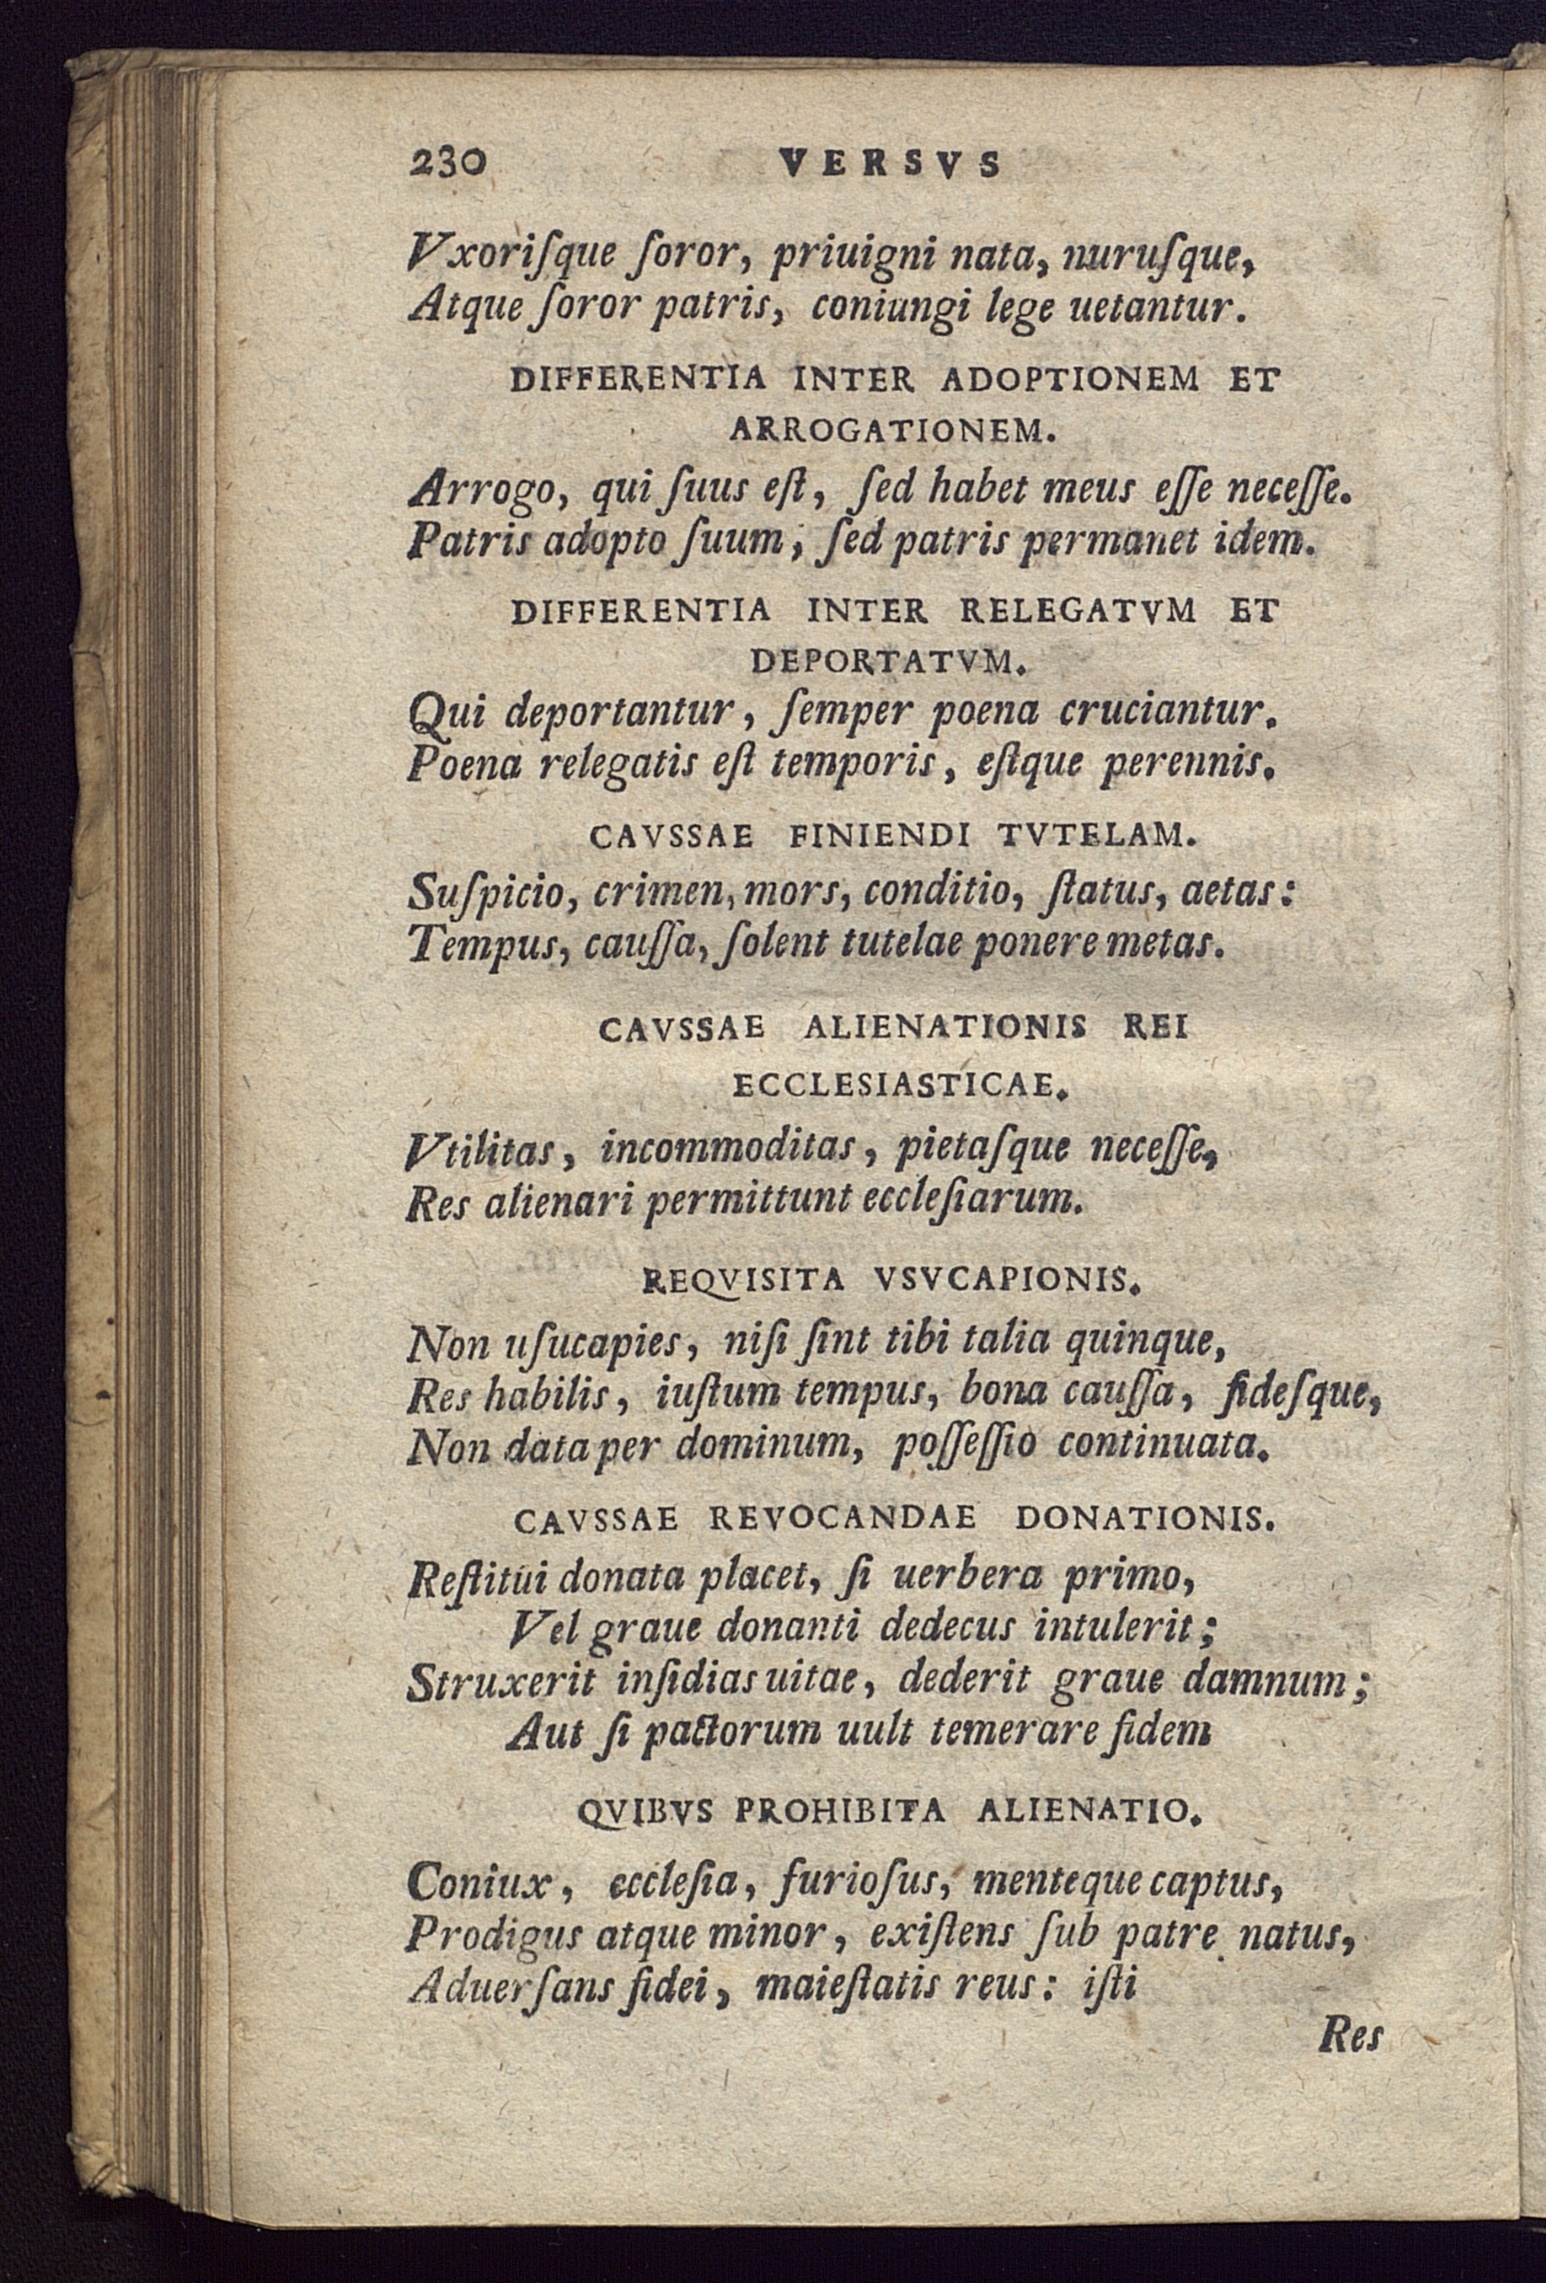 230 VERSVS
Vxoriſque ſoror, priuigni nata, nuruſque,
Atque ſoror patris, coniungi lege uetantur.
DIFFERENTIA INTER ADOPTIONEM ET
ARROGATIONEM.
Arrogo, qui ſuus eſt, ſed habet meus eſſe neceſſe.
Patris adopto ſuum, ſed patris permanet idem.
DIFFERENTIA INTER RELEGATVM ET
DEPORTATVM.
Qui deportantur, ſemper poena cruciantur.
Poena relegatis eſt temporis, eſtque perennis.
CAVSSAE FINIENDI TVTELAM.
Suſpicio, crimen, mors, conditio, ſtatus, aetas:
Tempus, cauſſa, ſolent tutelae ponere metas.
CAVSSAE ALIENATIONIS REI
ECCLESIASTICAE.
Vtilitas, incommoditas, pietaſque neceſſe,
Res alienari permittunt eccleſiarum.
REQVISITA VSVCAPIONIS.
Non uſucapies, niſi ſint tibi talia quinque,
Res habilis, iuſtum tempus, bona cauſſa, fideſque,
Non data per dominum, poſſeſſio continuata.
CAVSSAE REVOCANDAE DONATIONIS.
Reſtitui donata placet, ſi uerbera primo,
Vel graue donanti dedecus intulerit;
Struxerit inſidias uitae, dederit graue damnum;
Aut ſi pactorum uult temerare fidem
QVIBVS PROHIBITA ALIENATIO.
Coniux, eccleſia, furioſus, menteque captus,
Prodigus atque minor, exiſtens ſub patre natus,
Aduerſans fidei, maieſtatis reus: iſti
Res